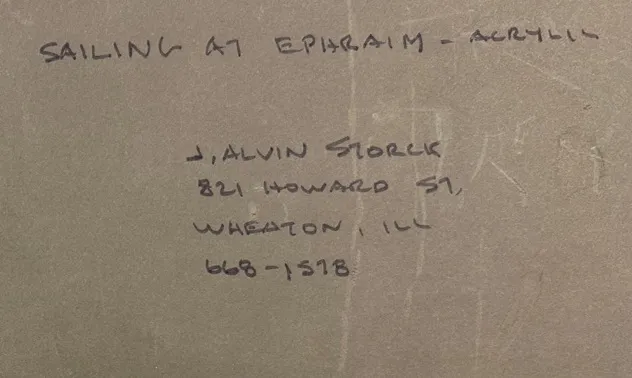 SAILING AT EPHRAIM - ACRYLIC
J. ALVIN STORCK
821 HOWARD ST.
WHEATON, ILL
668-1578